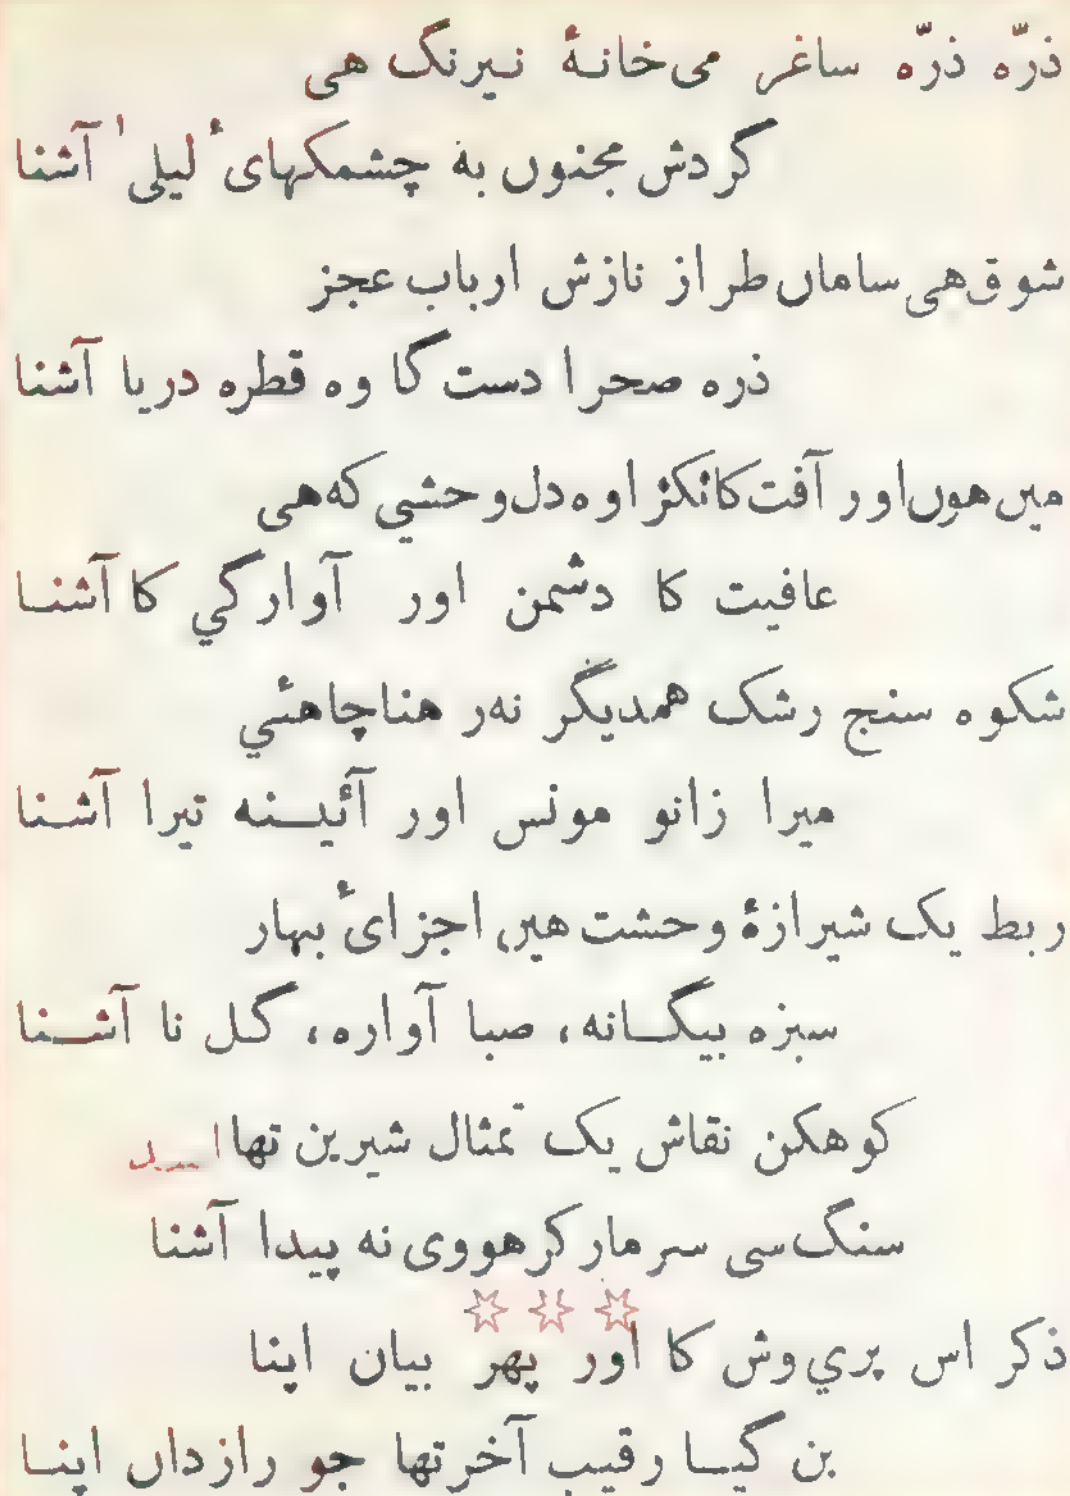 ذرّه ذرّه ساغر می‌خانۂ نیرنگ هی
گردش مجنوں به چشمکهایٔ لیلی' آشنا
شوق هی ساماں طراز نازش ارباب عجز
ذره صحرا دست گا وه قطره دریا آشنا
میں هوں اور آفت کا ٹکڑا وه دل وحشي که هی
عافیت کا دشمن اور آوارگي کا آشنا
شکوه سنج رشک همدیگر نه رهنا چاهئي
میرا زانو مونس اور آئینه تیرا آشنا
ربط یک شیرازۂ وحشت هیں اجزایٔ بہار
سبزه بیگانه، صبا آواره، گل نا آشنا
کوهکن نقاش یک تمثال شیرین تها اسد
سنگ سی سر مار کر هووی نه پیدا آشنا
ذکر اس پري وش کا اور پهر بیان اپنا
بن گیا رقیب آخر تها جو رازداں اپنا